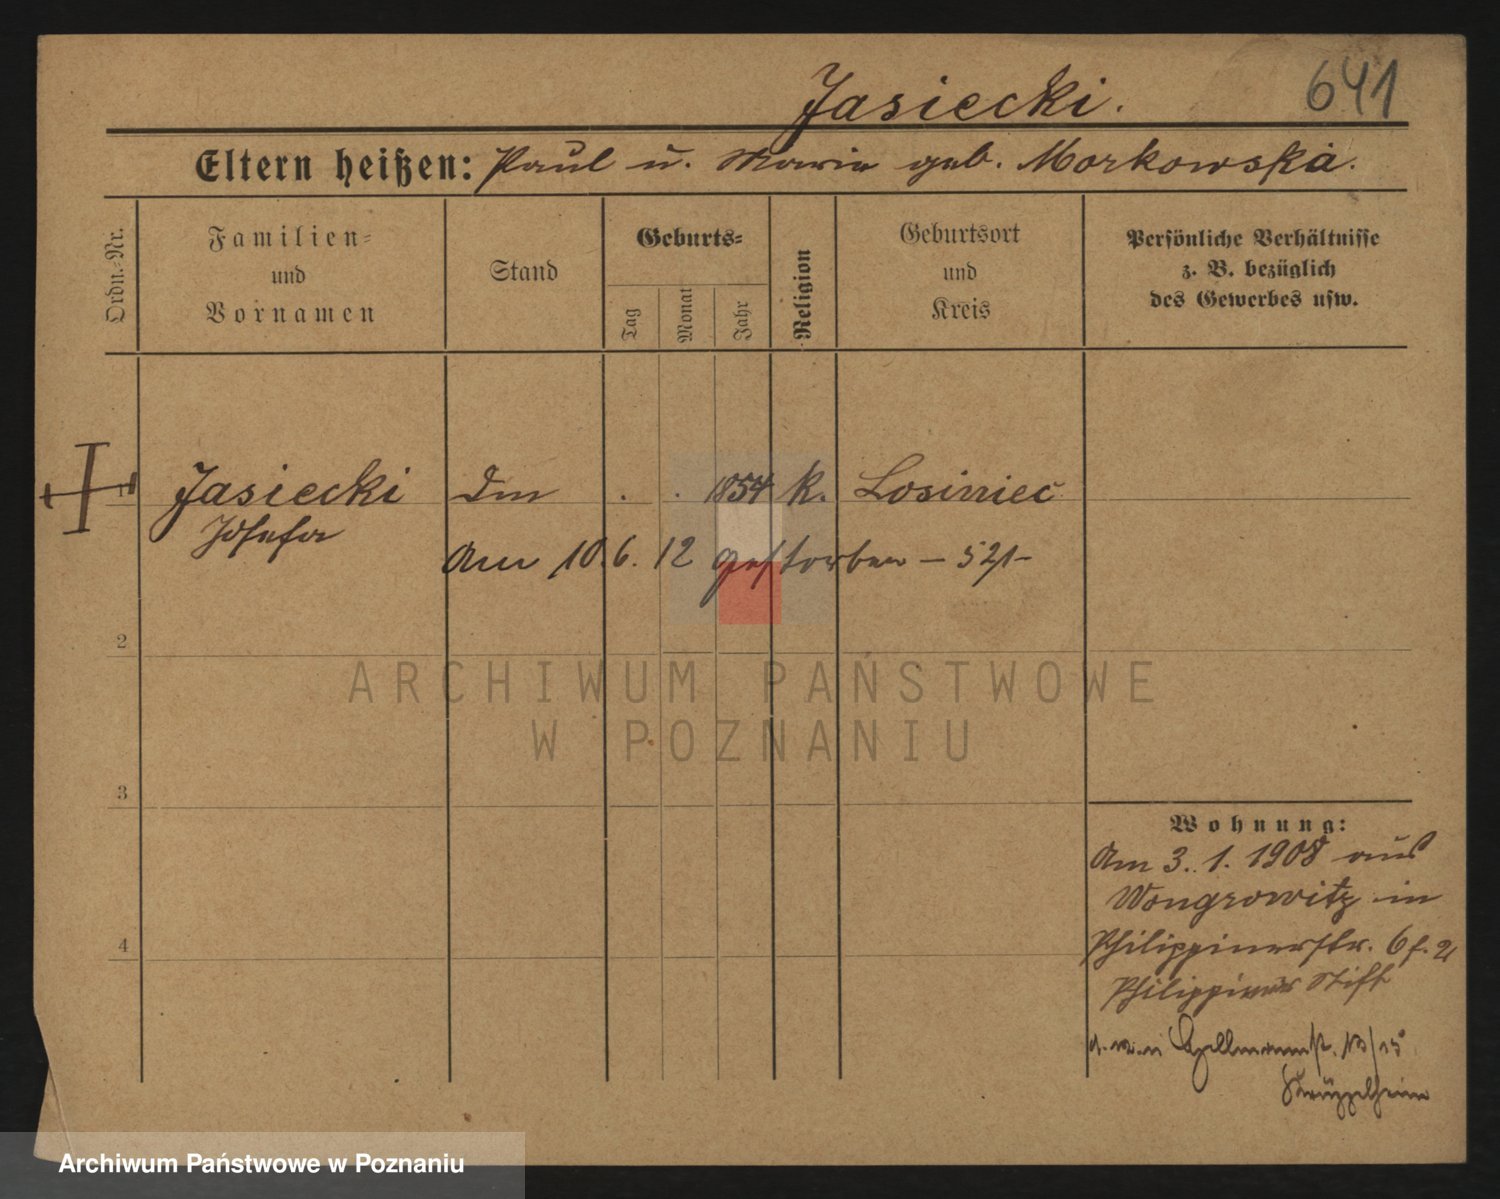 Jasiecki.
641
Eltern heißen: Paul u. Maria geb. Morkowska.
Ordn.-Nr.
Familien-
und
Vornamen
Stand
Geburts-
Tag
Monat
Jahr
Religion
Geburtsort
und
Kreis
Persönliche Verhältnisse
z. B. bezüglich
des Gewerbes usw.
1 Jasiecki . . 1854 k. Losiniec
Josefa
Am 10.6.12 gestorben – 521–
2
3
4
Wohnung:
Am 3.1.1908 aus
Wongrowitz in
Philippinerstr. 6
Philippiner Stift
13/15
Krüppelheim
ARCHIWUM PAŃSTWOWE
W POZNANIU
Archiwum Państwowe w Poznaniu